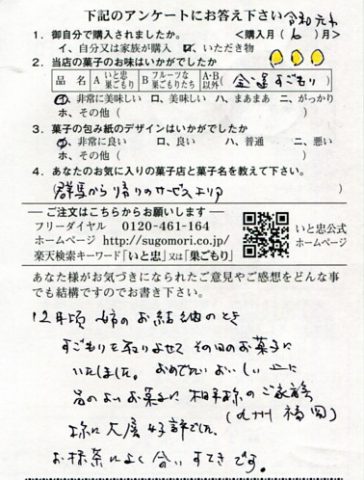 下記のアンケートにお答え下さい 令和元年
1. 御自分で購入されましたか。 <購入月( 6 )月>
イ、自分又は家族が購入 ロ、いただき物
2. 当店の菓子のお味はいかがでしたか
品名 A いと忠巣ごもり B フルーツな巣ごもりたち A・B以外( すごもり )
イ、非常に美味しい ロ、美味しい ハ、まあまあ ニ、がっかり
ホ、その他( )
3. 菓子の包み紙のデザインはいかがでしたか
イ、非常に良い ロ、良い ハ、普通 ニ、悪い
ホ、その他( )
4. あなたのお気に入りの菓子店と菓子名を教えて下さい。
群馬から帰りのサービスエリア
ご注文はこちらからお願いします
フリーダイヤル 0120-461-164
ホームページ http://sugomori.co.jp/
楽天検索キーワード「いと忠」又は「巣ごもり」
いと忠公式
ホームページ
あなた様がお気づきになられたご意見やご感想をどんな事
でも結構ですのでお書き下さい。
12月頃 姉のお結納のとき
すごもりを取りよせて その日のお菓子に
いたしました。おめでたい おいしい 上に
品のよいお菓子に 相手様のご家族
(九州 福岡)
様に大層好評でした。
お抹茶によく合い すてきです。